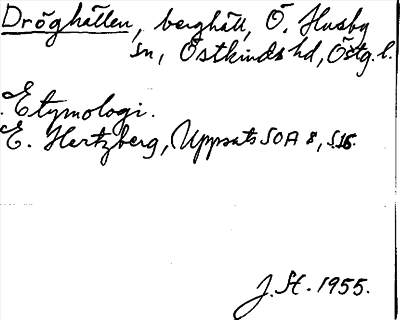 Dröghällen, berghäll, Ö. Husby
sn, Östkinds hd, Östg. l.
Etymologi.
E. Hertzberg, Uppsats SOA 8, s. 16.
J. St. 1955.